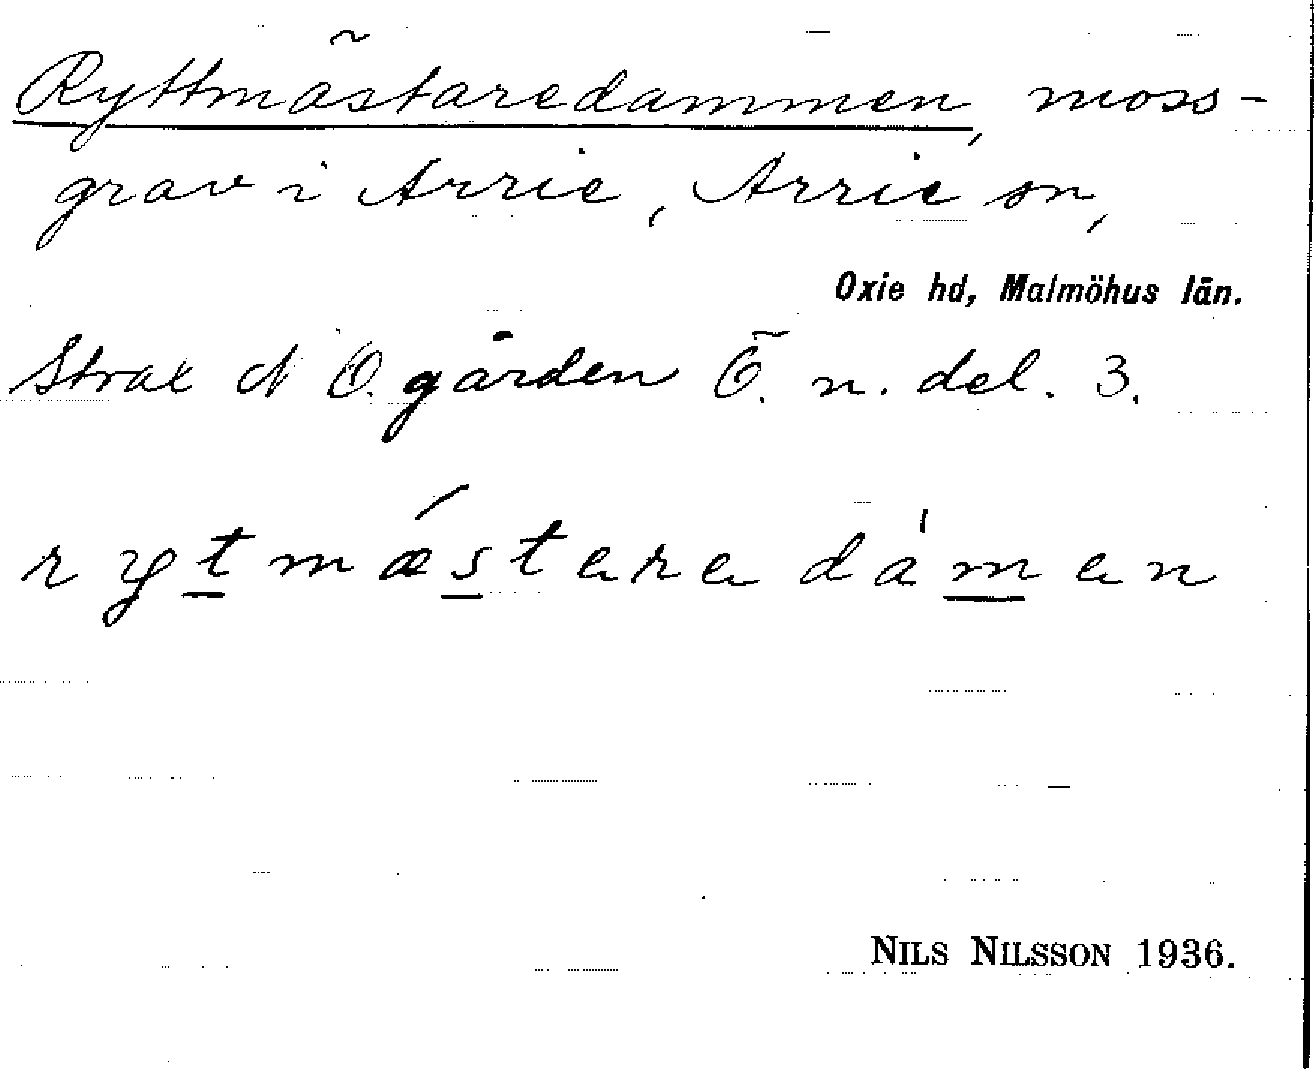 Ryttmästaredammen, moss-
grav i Arrie, Arrie sn,
Oxie hd, Malmöhus län.
Strax N O. gården Ö. n. del. 3.
rytmæstaradáman
NILS NILSSON 1936.